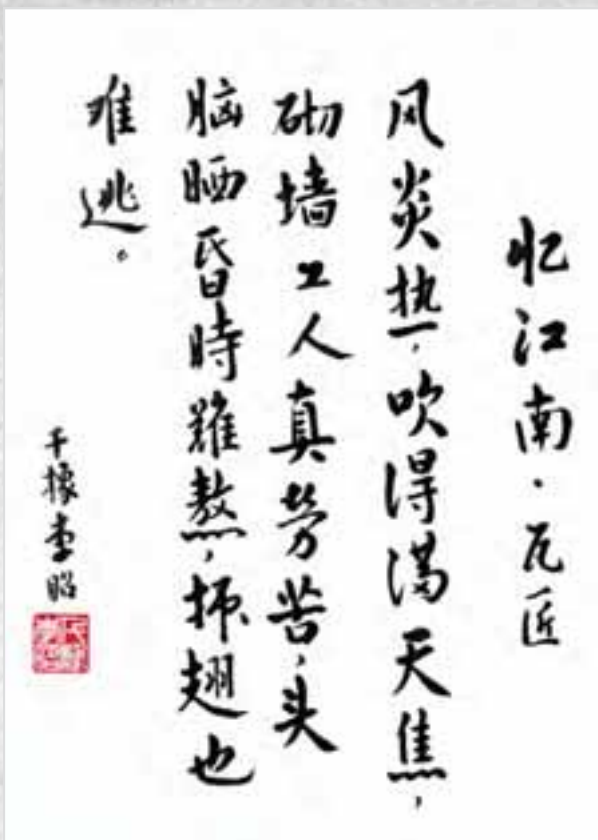 忆江南·瓦匠
风炎热，吹得满天焦，
砌墙工人真劳苦，头
脑晒昏時難熬，振翅也
难逃。
千橡李昭